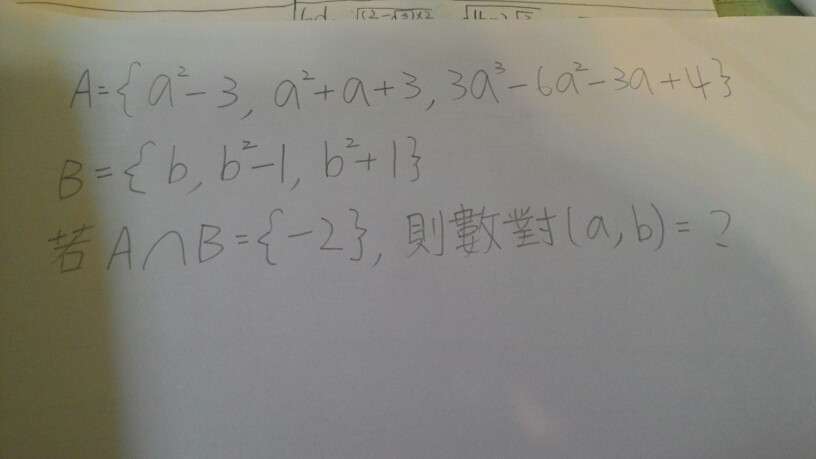 A={a²-3, a²+a+3, 3a³-6a²-3a+4}
B={b, b²-1, b²+1}
若A∩B={-2}, 則數對(a,b)=?